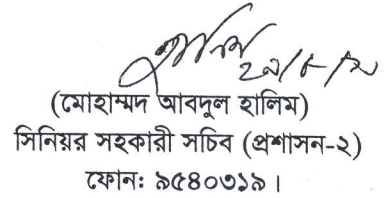 (মোহাম্মদ আবদুল হালিম)
সিনিয়র সহকারী সচিব (প্রশাসন-২)
ফোন: ৯৫৪০৩১৯।